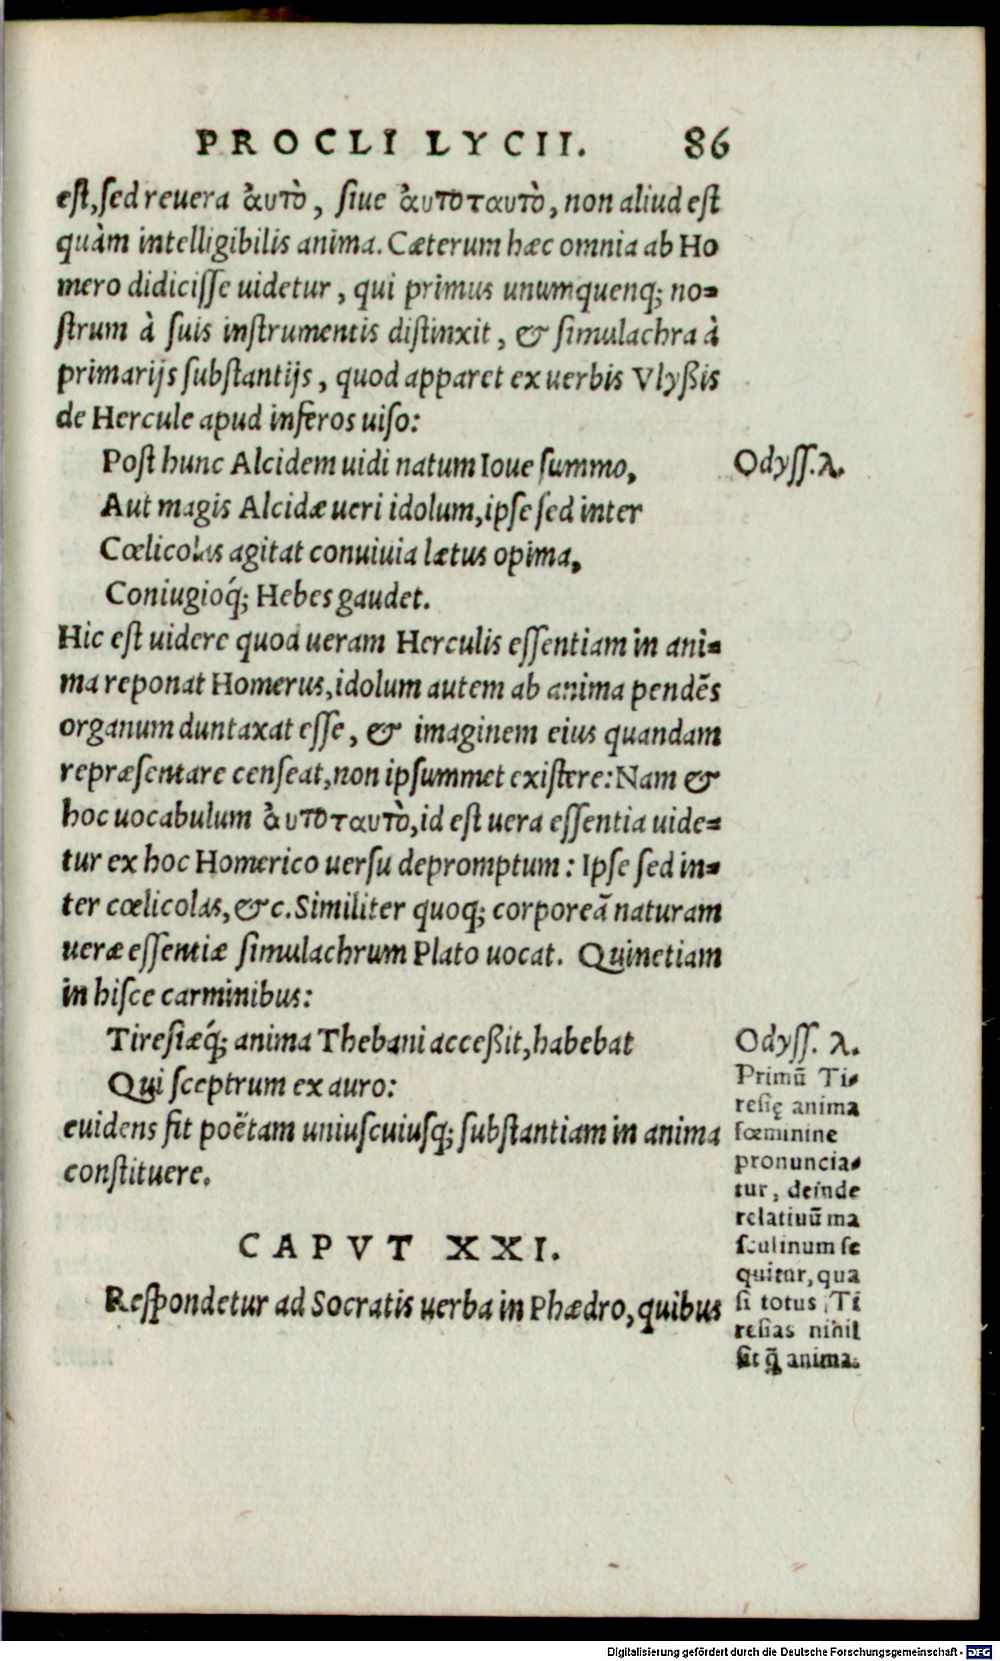 PROCLI LYCII. 86
est, sed reuera ἀυτὸ, siue ἀυτοταυτὸ, non aliud est
quàm intelligibilis anima. Cæterum hæc omnia ab Ho
mero didicisse uidetur, qui primus unumquenq; no-
strum à suis instrumentis distinxit, & simulachra à
primarijs substantijs, quod apparet ex uerbis Vlyßis
de Hercule apud inferos uiso:
Post hunc Alcidem uidi natum Ioue summo,
Odyss. λ.
Aut magis Alcidæ ueri idolum, ipse sed inter
Cœlicolas agitat conuiuia lætus opima,
Coniugioq́; Hebes gaudet.
Hic est uidere quod ueram Herculis essentiam in ani-
ma reponat Homerus, idolum autem ab anima pendẽs
organum duntaxat esse, & imaginem eius quandam
repræsentare censeat, non ipsummet existere: Nam &
hoc uocabulum ἀυτοταυτὸ, id est uera essentia uide-
tur ex hoc Homerico uersu depromptum: Ipse sed in-
ter cœlicolas, &c. Similiter quoq; corporeã naturam
ueræ essentiæ simulachrum Plato uocat. Quinetiam
in hisce carminibus:
Tiresiæq́; anima Thebani acceßit, habebat
Qui sceptrum ex auro:
euidens fit poëtam uniuscuiusq; substantiam in anima
constituere.
Odyss. λ.
Primũ Ti-
resię anima
fœminine
pronuncia-
tur, deinde
relatiuũ ma
sculinum se
quitur, qua
si totus Ti
resias nihil
sit q̃ anima.
CAPVT XXI.
Respondetur ad Socratis uerba in Phædro, quibus
Digitalisierung gefördert durch die Deutsche Forschungsgemeinschaft - DFG